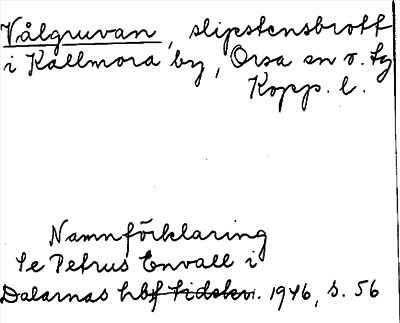 Vålgruvan, slipstensbrott
i Kallmora by, Orsa sn o. tg
Kopp. l.
Namnförklaring
Se Petrus Envall i
Dalarnas hbf tidskr. 1946, s. 56